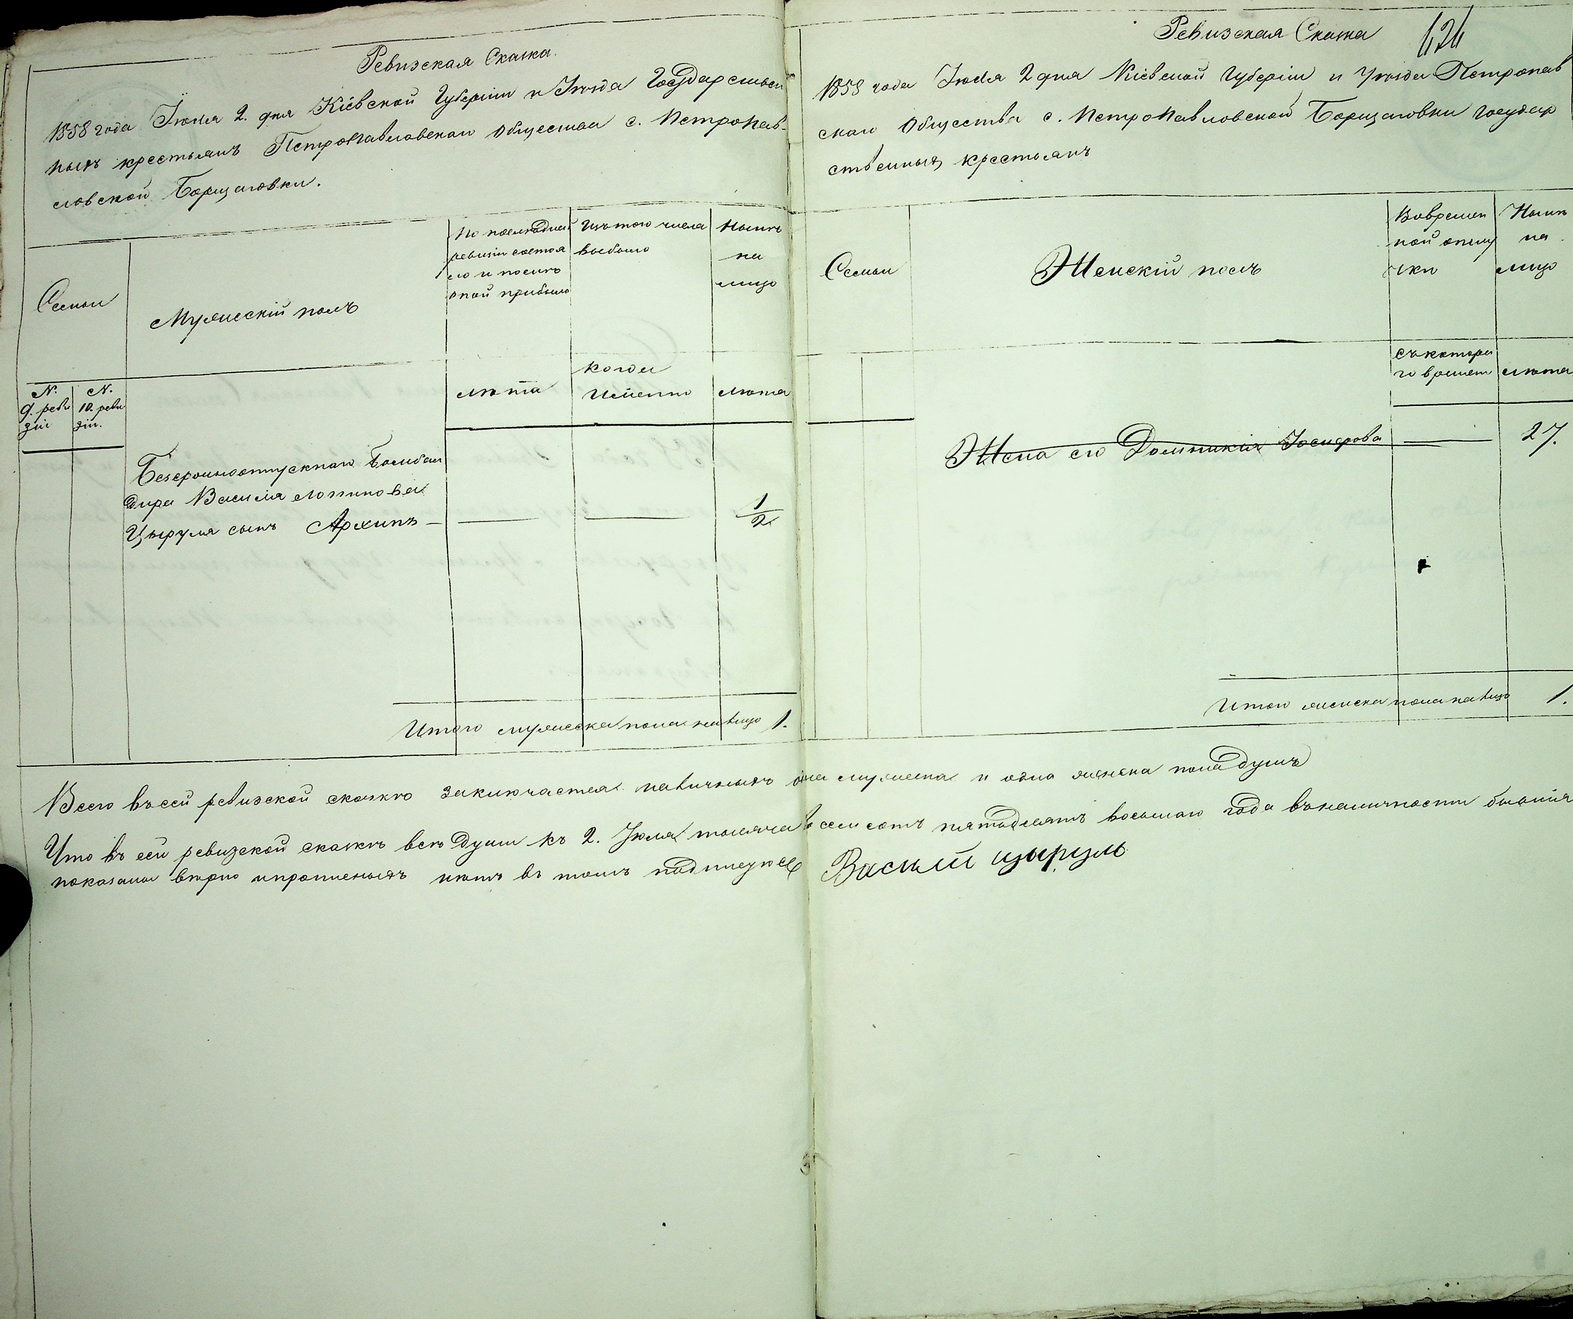 Ревизская Сказка
1858 года Іюля 2. дня Кіевской Губерніи и Уѣзда Государствен
ныхъ крестьянъ Петропавловскаго Общества с. Петропав-
ловской Борщаговки.
Семьи
Мужескій полъ
По послѣдней
ревизіи состоя
ло и послѣ
оной прибыло
Изъ того числа
выбыло
Нынѣ
на
лицо
N.
9. реви
зіи
N.
10. реви
зіи.
лѣта
когда
Именно
лѣта
Безсрочноотпускнаго Бомбан
дира Василія Логгинова
Цыруля сынъ Архипъ
1/2
Итого мужеска пола на лицо 1.
Ревизская Сказка
1858 года Іюля 2 дня Кіевской Губерніи и Уѣзда Петропав
скаго Общества с. Петропавловской Борщаговки Государ
ственныхъ крестьянъ
Семьи
Женскій полъ
Во времен
ной отлу
чки
Нынѣ
на
лицо
съ котора
го времени
лѣта
Жена его Домникія Іосифова 27.
Итого женска пола на лицо 1.
Всего въ сей ревизской сказкѣ заключается наличныхъ одна мужеска и одна женска пола душъ
Что въ сей ревизской сказкѣ всѣ души къ 2. Іюля тысяча восемсотъ пятьдесятъ восьмаго года въ наличности бывшія
показаны вѣрно и прописныхъ нѣтъ въ томъ подписуюсь Василй цыруль